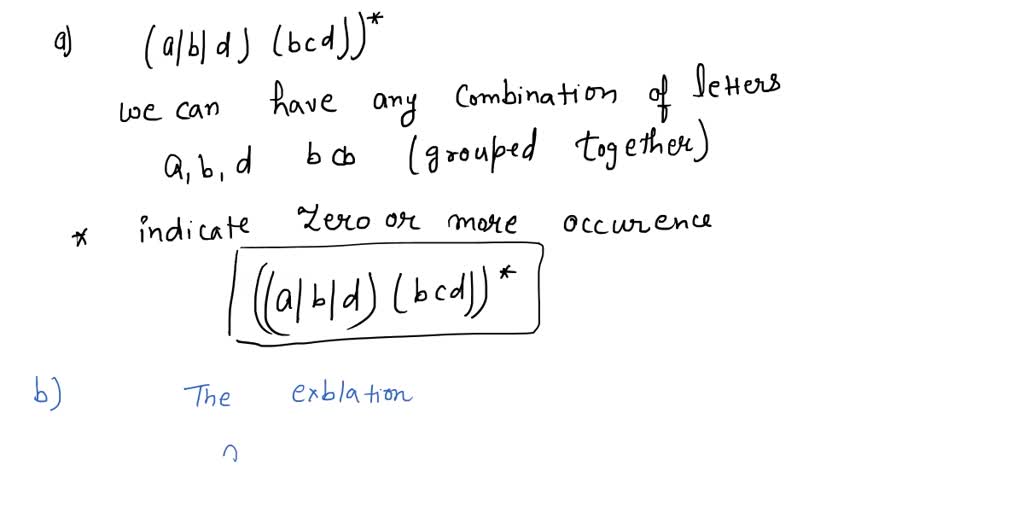 a) (a|b|d) (bcd))*
we can have any combination of letters
a, b, d bcb (grouped together)
* indicate zero or more occurence
((a|b|d) (bcd))*
b) The exblation